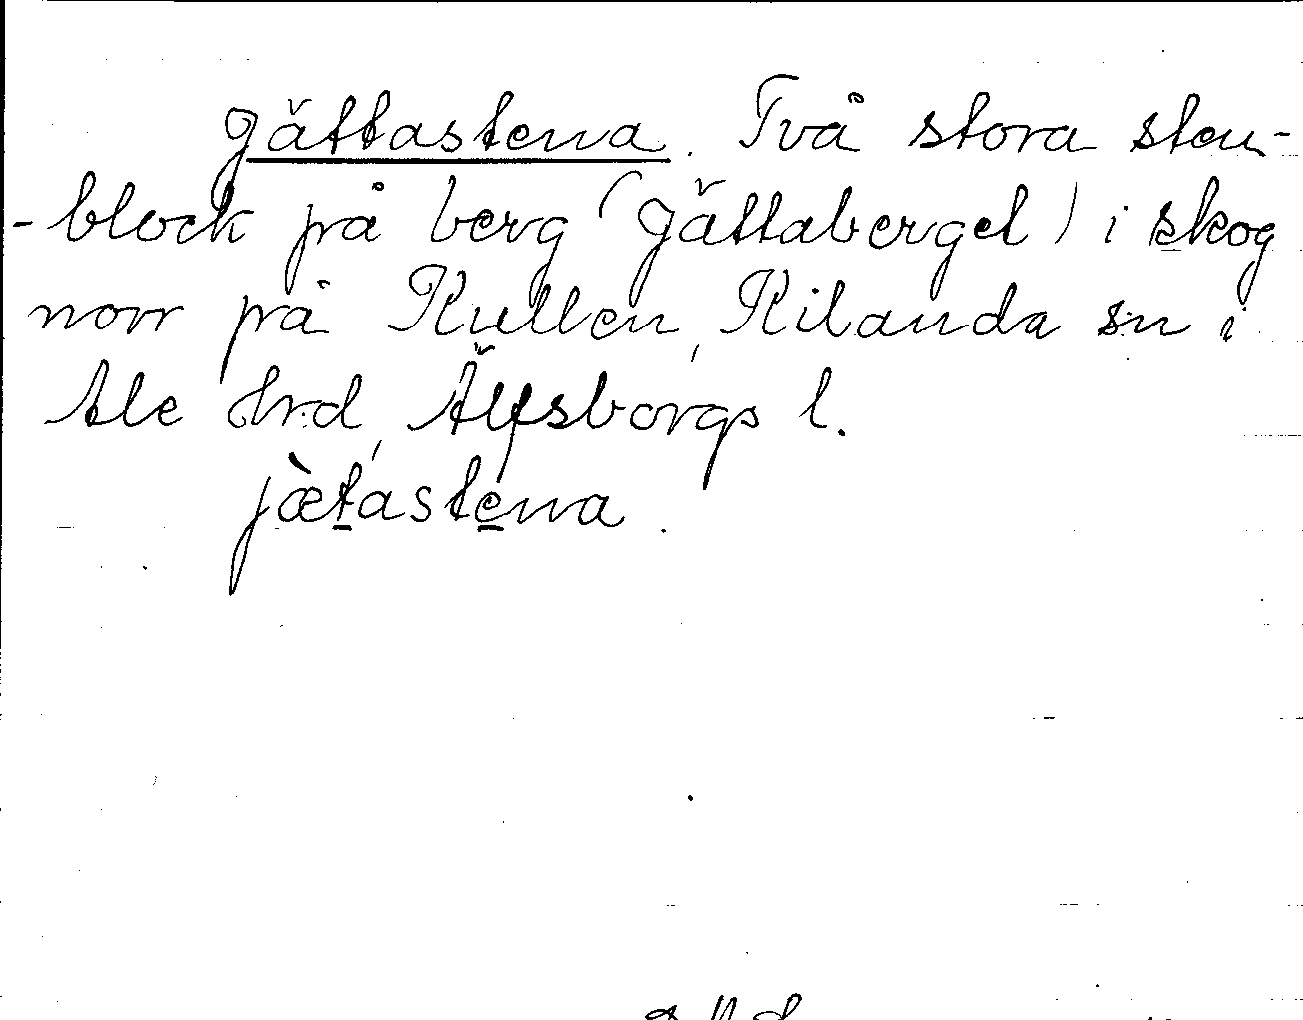 Jättastena. Två stora sten-
-block på berg (Jättaberget) i skog
norr på Kullen, Kilanda sn i
Ale Hrd, Älfsborgs l.
jætastena.